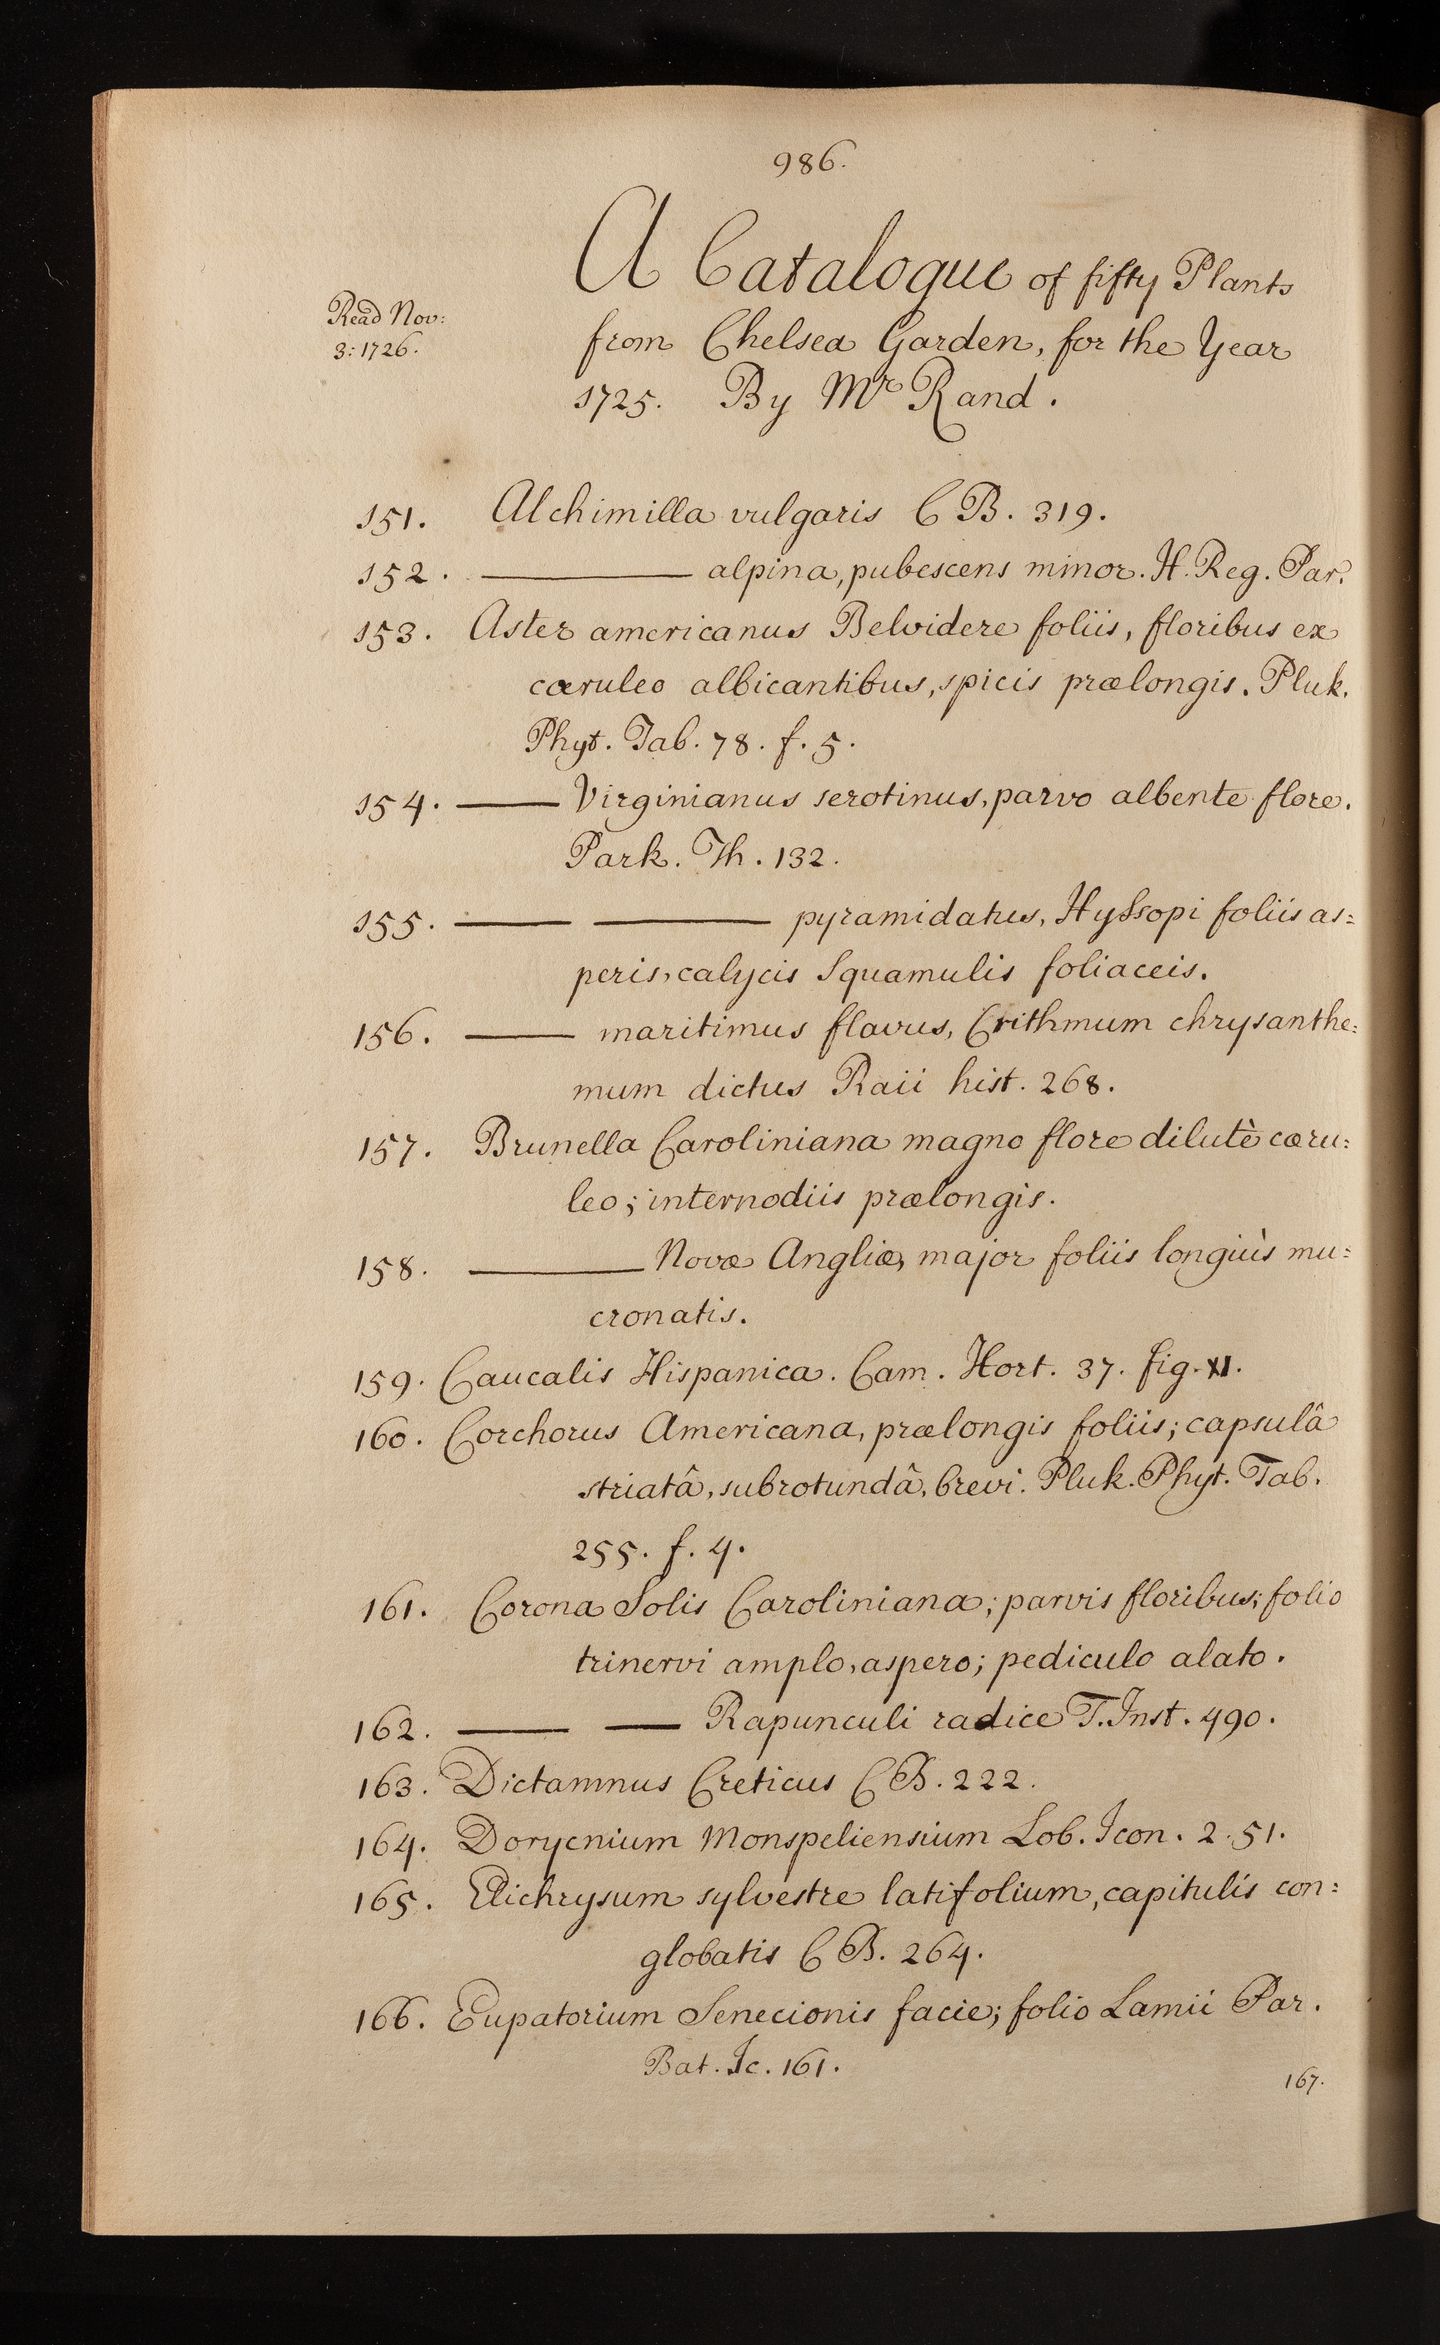 986.
A Catalogue of fifty Plants
Read Nov:
3: 1726.
from Chelsea Garden, for the Year
1725. By Mr Rand.
151. Alchimilla vulgaris C B. 319.
152. ——— alpina, pubescens minor. H. Reg. Par.
153. Aster americanus Belvidere foliis, floribus ex
cæruleo albicantibus, spicis prælongis. Pluk.
Phyt. Tab. 78. f. 5.
154. ——— Virginianus serotinus, parvo albente flore.
Park. Th. 132.
155. ——— ——— pyramidatus, Hyssopi foliis as=
peris, calycis Squamulis foliaceis.
156. ——— maritimus flavus, Crithmum chrysanthe=
mum dictus Raii hist. 268.
157. Brunella Caroliniana magno flore dilutè cæru=
leo; internodiis prælongis.
158. ——— Novæ Angliæ, major foliis longiùs mu=
cronatis.
159. Caucalis Hispanica. Cam. Hort. 37. fig. XI.
160. Corchorus Americana, prælongis foliis; capsulâ
striatâ, subrotundâ, brevi. Pluk. Phyt. Tab.
255. f. 4.
161. Corona Solis Caroliniana; parvis floribus; folio
trinervi amplo, aspero; pediculo alato.
162. ——— ——— Rapunculi radice T. Inst. 490.
163. Dictamnus Creticus C B. 222.
164. Dorycnium Monspeliensium Lob. Icon. 2. 51.
165. Elichrysum sylvestre latifolium, capitulis con=
globatis C B. 264.
166. Eupatorium Senecionis facie; folio Lamii Par.
Bat. Ic. 161.
167.